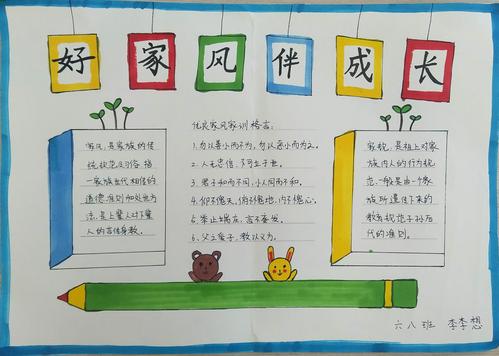 好家风伴成长
家风,是家族的传
统规范及习俗,指
一家族世代相传的
道德准则和处世方
法,是上辈人对下辈
人的言传身教。
优良家风家训格言:
1、勿以善小而不为,勿以恶小而为之。
2、人无忠信,不可立于世。
3、君子和而不同,小人同而不和。
4、仰不愧天,俯不愧地,内不愧心。
5、举止端庄,言不妄发。
6、父之爱子,教以义方。
家规,是祖上对家
族内人的行为规
范,一般是由一个家
族所遗传下来的
教育规范子孙后
代的准则。
六八班 李李想